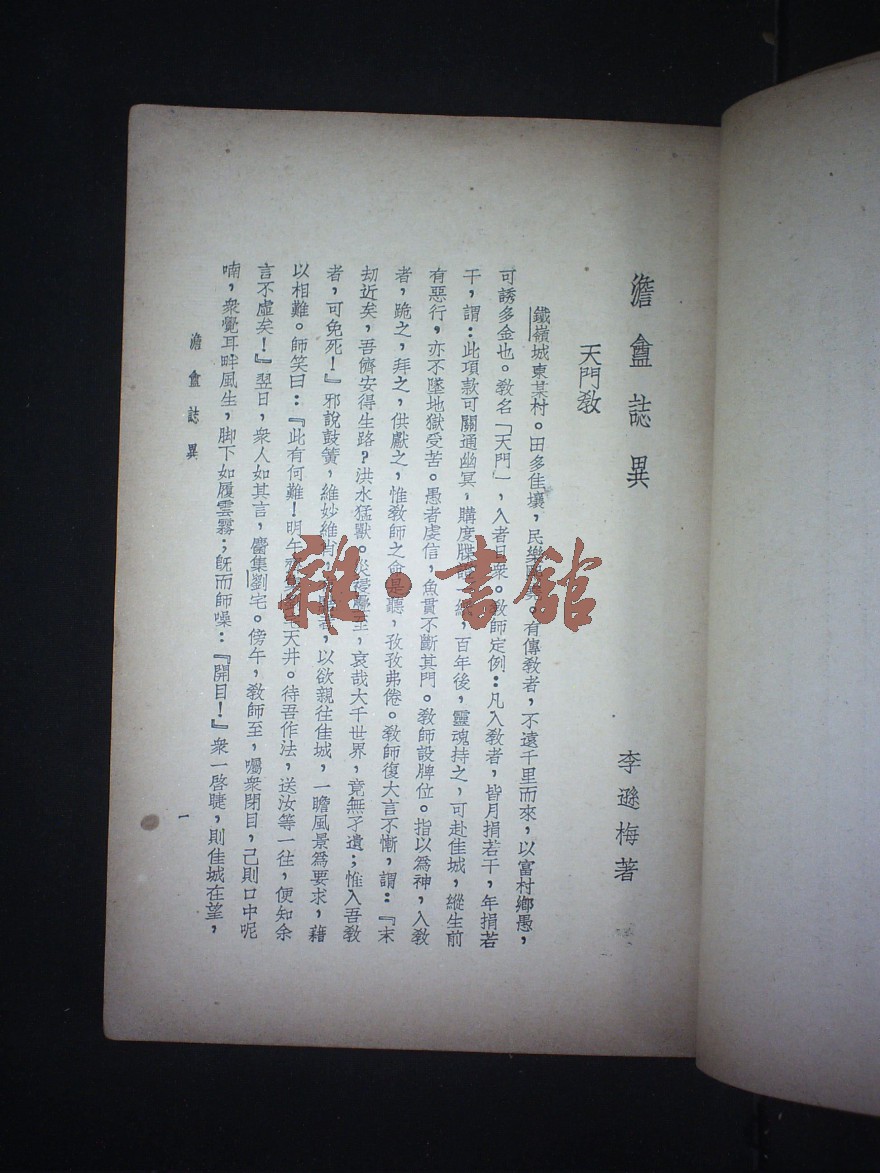 澹盦誌異
李遜梅著
天門教
鐵嶺城東某村。田多佳壤，民樂。有傳教者，不遠千里而來，以富村鄉愚，
可誘多金也。教名「天門」，入者日衆。教師定例：凡入教者，皆月捐若干，年捐若
干，謂：此項款可關通幽冥，購度牒，百年後，靈魂持之，可赴佳城，縱生前
有惡行，亦不墜地獄受苦。愚者虔信，魚貫不斷其門。教師設牌位。指以爲神，入教
者，跪之，拜之，供獻之，惟教師之命是聽，孜孜弗倦。教師復大言不慚，謂：『末
劫近矣，吾儕安得生路？洪水猛獸。災祲疊至，哀哉大千世界，竟無孑遺；惟入吾教
者，可免死！』邪說鼓簧，維妙維肖，以欲親往佳城，一瞻風景爲要求，藉
以相難。師笑曰：『此有何難！明午天井。待吾作法，送汝等一往，便知余
言不虛矣！』翌日，衆人如其言，麕集劉宅。傍午，教師至，囑衆閉目，己則口中呢
喃，衆覺耳畔風生，脚下如履雲霧；旣而師噪：『開目！』衆一啓睫，則佳城在望，
澹盦誌異
一
雜·書館